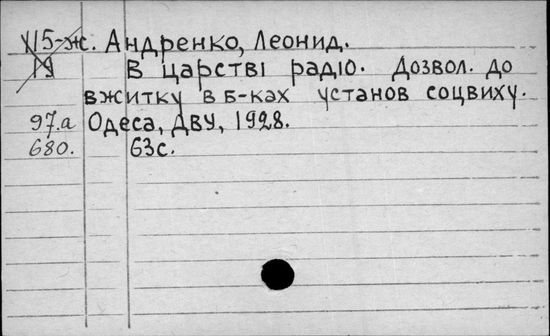 115-ж. Андренко, Леонид.
19 В царстві радіо. Дозвол. до
вжитку в б-ках установ соцвиху.
97.а Одеса, ДВУ, 1928.
680. 63с.